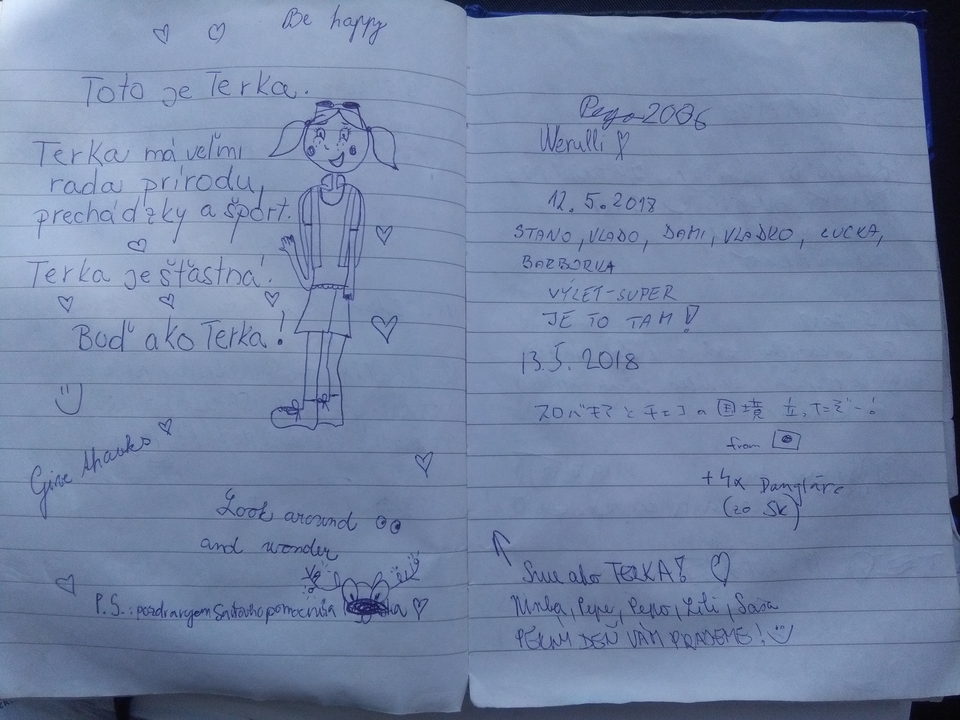 Be happy
Toto je Terka.
Terka má veľmi
rada prírodu,
prechádzky a šport.
Terka je šťastná!
Buď ako Terka!
Give thanks
Look around
and wonder
P.S.: pozdravujem
2006
Werulli
12.5.2018
STANO, VLADO, DAMI, VLADKO, ĽUCKA,
BARBORKA
VÝLET-SUPER
JE TO TAM!
13.5.2018
スロバキアとチェコの国境 立
from
+4x
(20 Sk)
Sme ako TERKA!
Pepe, Pepo, Lili, Sara
DEŇ VÁM PRAJEME!